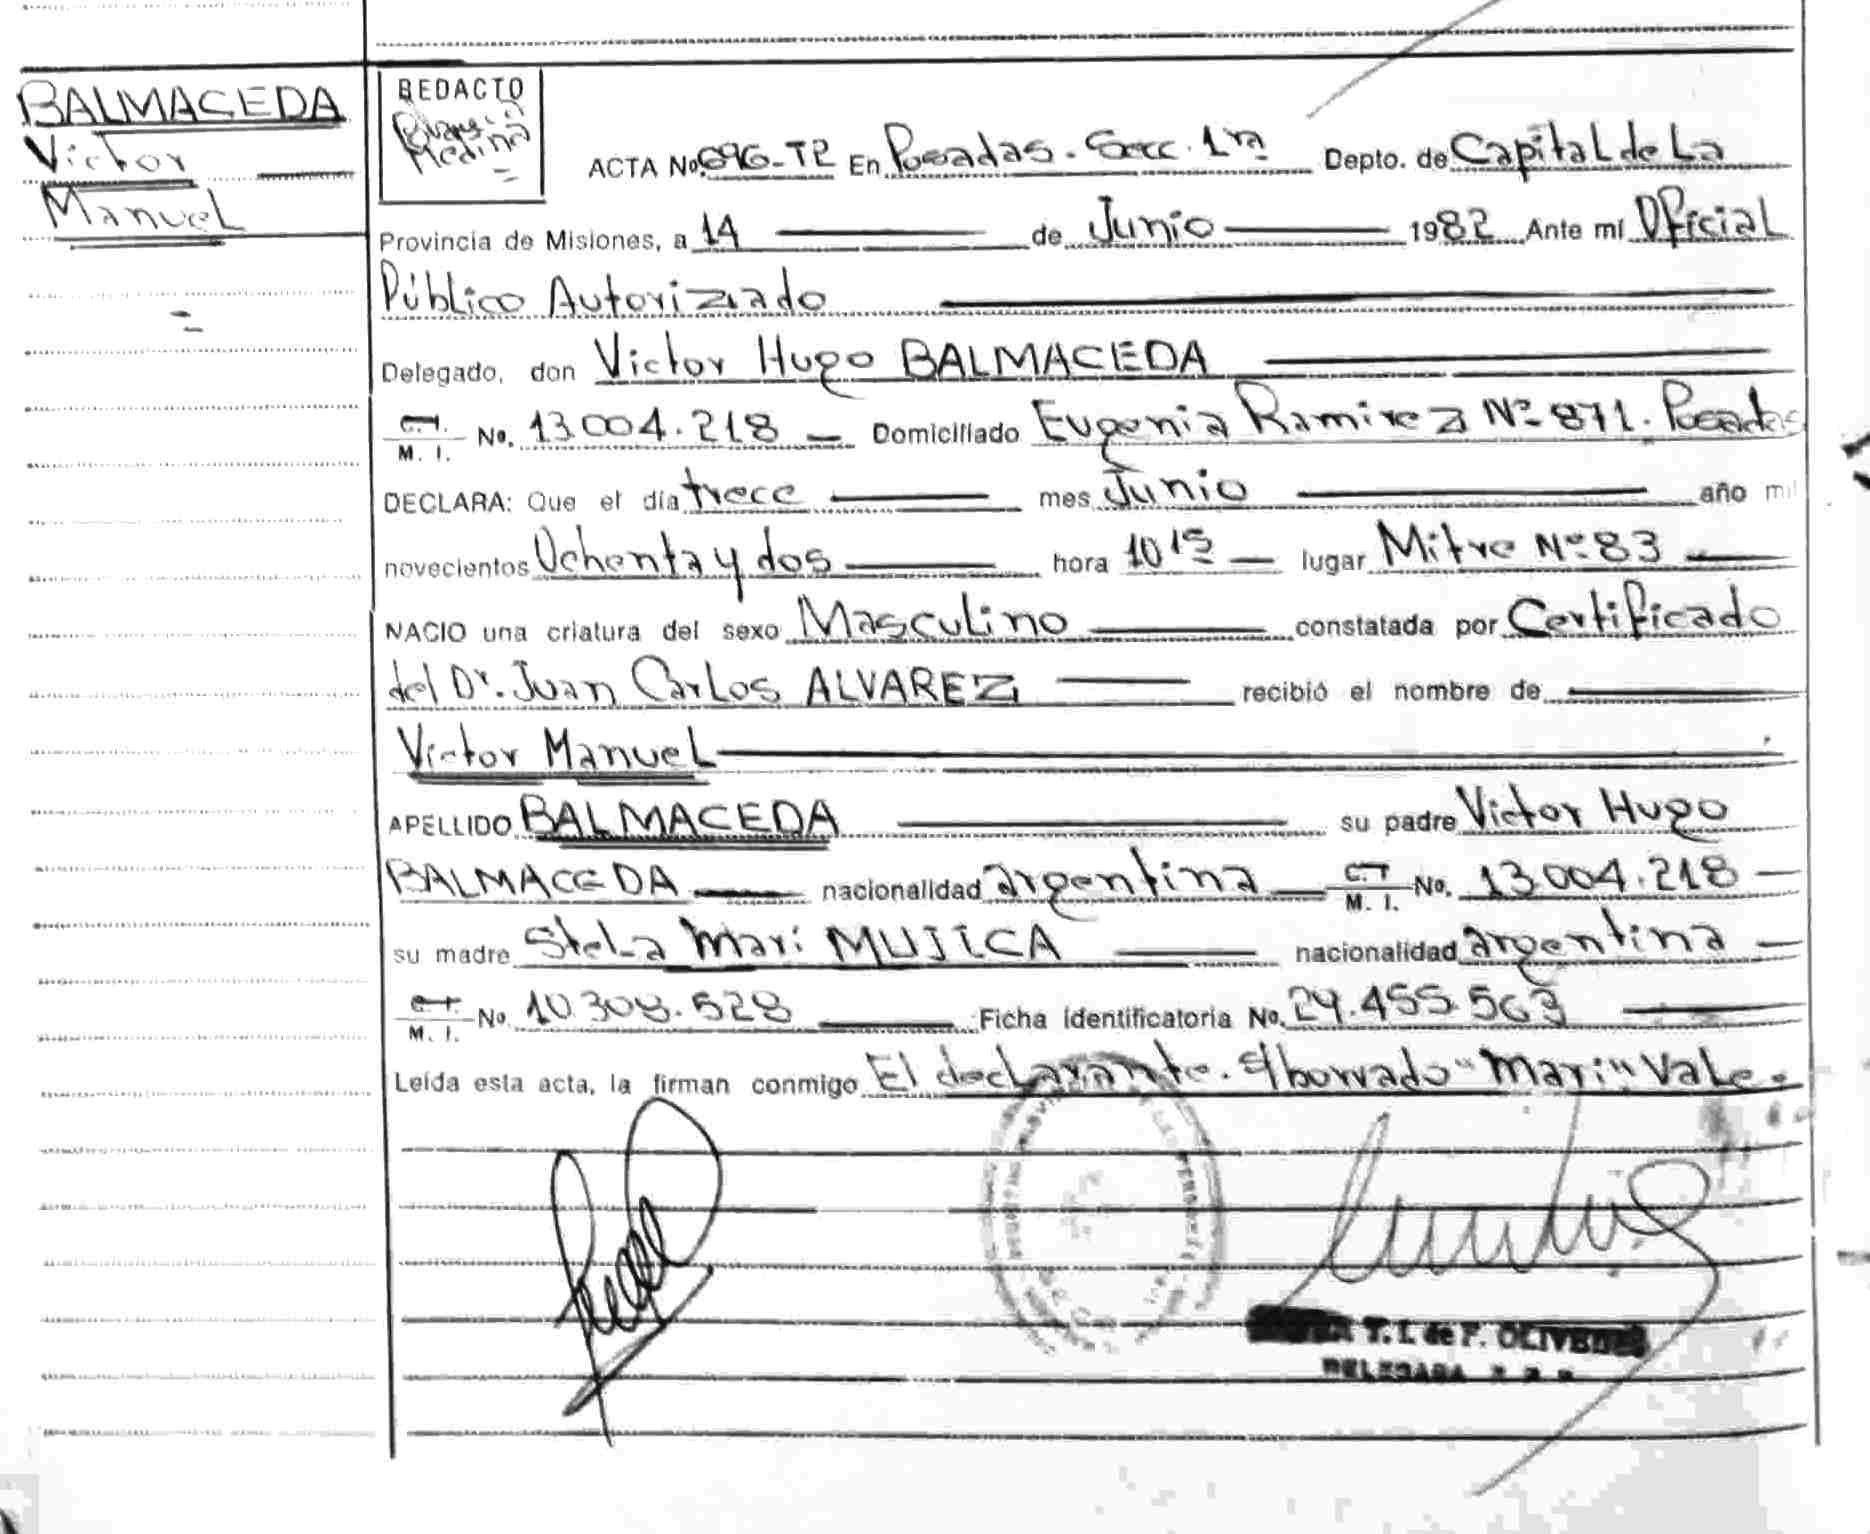 BALMACEDA
Victor
Manuel
REDACTO
Medina
ACTA No. 696-TP En Posadas. Secc. 1ra Depto. de Capital de La
Provincia de Misiones, a 14 de Junio 1982 Ante mí Oficial
Público Autorizado
Delegado, don Victor Hugo BALMACEDA
C.I. M. I. No. 13.004.218 Domiciliado Eugenia Ramirez Nº 871. Posadas
DECLARA: Que el día trece mes Junio año mil
novecientos Ochenta y dos hora 10 15 lugar Mitre Nº 83
NACIO una criatura del sexo Masculino constatada por Certificado
del Dr. Juan Carlos ALVAREZ recibió el nombre de
Victor Manuel
APELLIDO BALMACEDA su padre Victor Hugo
BALMACEDA nacionalidad argentina C.I. M. I. No. 13.004.218
su madre Stela Mari MUJICA nacionalidad argentina
C.I. M. I. No. 10.308.528 Ficha identificatoria No. 29.455.563
Leída esta acta, la firman conmigo El declarante. E/borrado "Mari" Vale.
T. I. de F. OLIVERA
DELEGADA